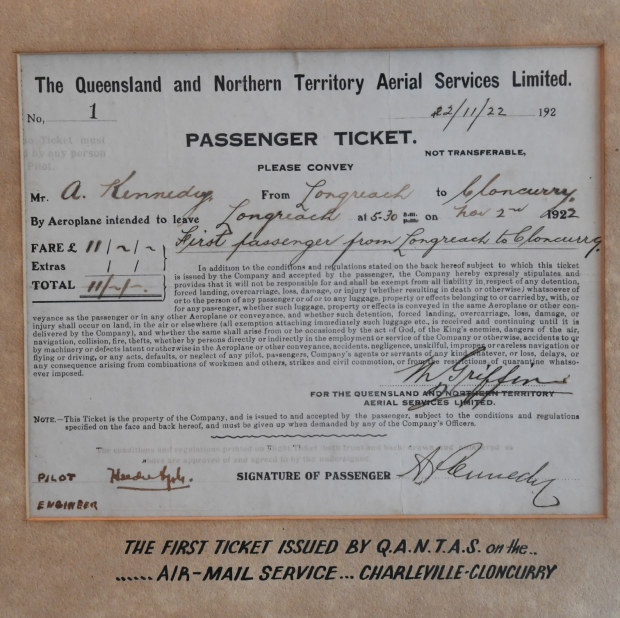 The Queensland and Northern Territory Aerial Services Limited.
No, 1 22/11/22 192
PASSENGER TICKET.
NOT TRANSFERABLE,
PLEASE CONVEY
Mr. A. Kennedy. From Longreach to Cloncurry.
By Aeroplane intended to leave Longreach at 5-30 a.m. p.m. on Nov 2nd 1922
FARE £ 11/~/~ First passenger from Longreach to Cloncurry.
Extras / /
TOTAL 11/~/~.
In addition to the conditions and regulations stated on the back hereof subject to which this ticket
is issued by the Company and accepted by the passenger, the Company hereby expressly stipulates and
provides that it will not be responsible for and shall be exempt from all liability in, respect of any detention,
forced landing, overcarriage, loss, damage, or injury (whether resulting in death or otherwise) whatever of
or to the person of any passenger or of or to any luggage, property or effects belonging to or carried by, with, or
for any passenger, whether such luggage, property or effects is conveyed in the same Aeroplane or other con-
veyance as the passenger or in any other Aeroplane or conveyance, and whether such detention, forced landing, overcarriage, loss, damage, or
injury shall occur on land, in the air or elsewhere (all exemption attaching immediately such luggage etc., is received and continuing until it is
delivered by the Company), and whether the same shall arise from or be occasioned by the act of God, of the King's enemies, dangers of the air,
navigation, collision, fire, thefts, whether by persons directly or indirectly in the employment or service of the Company or otherwise, accidents to or
by machinery or defects latent or otherwise in the Aeroplane or other conveyance, accidents, negligence, unskilful, improper or careless navigation or
flying or driving, or any acts, defaults, or neglect of any pilot, passengers, Company's agents or servants of any kind whatever, or loss, delays, or
any consequence arising from combinations of workmen and others, strikes and civil commotion, or from the restrictions of quarantine whatso-
ever imposed.
M. Griffin
FOR THE QUEENSLAND AND NORTHERN TERRITORY
AERIAL SERVICES LIMITED.
NOTE.—This Ticket is the property of the Company, and is issued to and accepted by the passenger, subject to the conditions and regulations
specified on the face and back hereof, and must be given up when demanded by any of the Company's Officers.
PILOT SIGNATURE OF PASSENGER A Kennedy
ENGINEER
THE FIRST TICKET ISSUED BY Q.A.N.T.A.S. on the..
...... AIR-MAIL SERVICE... CHARLEVILLE-CLONCURRY